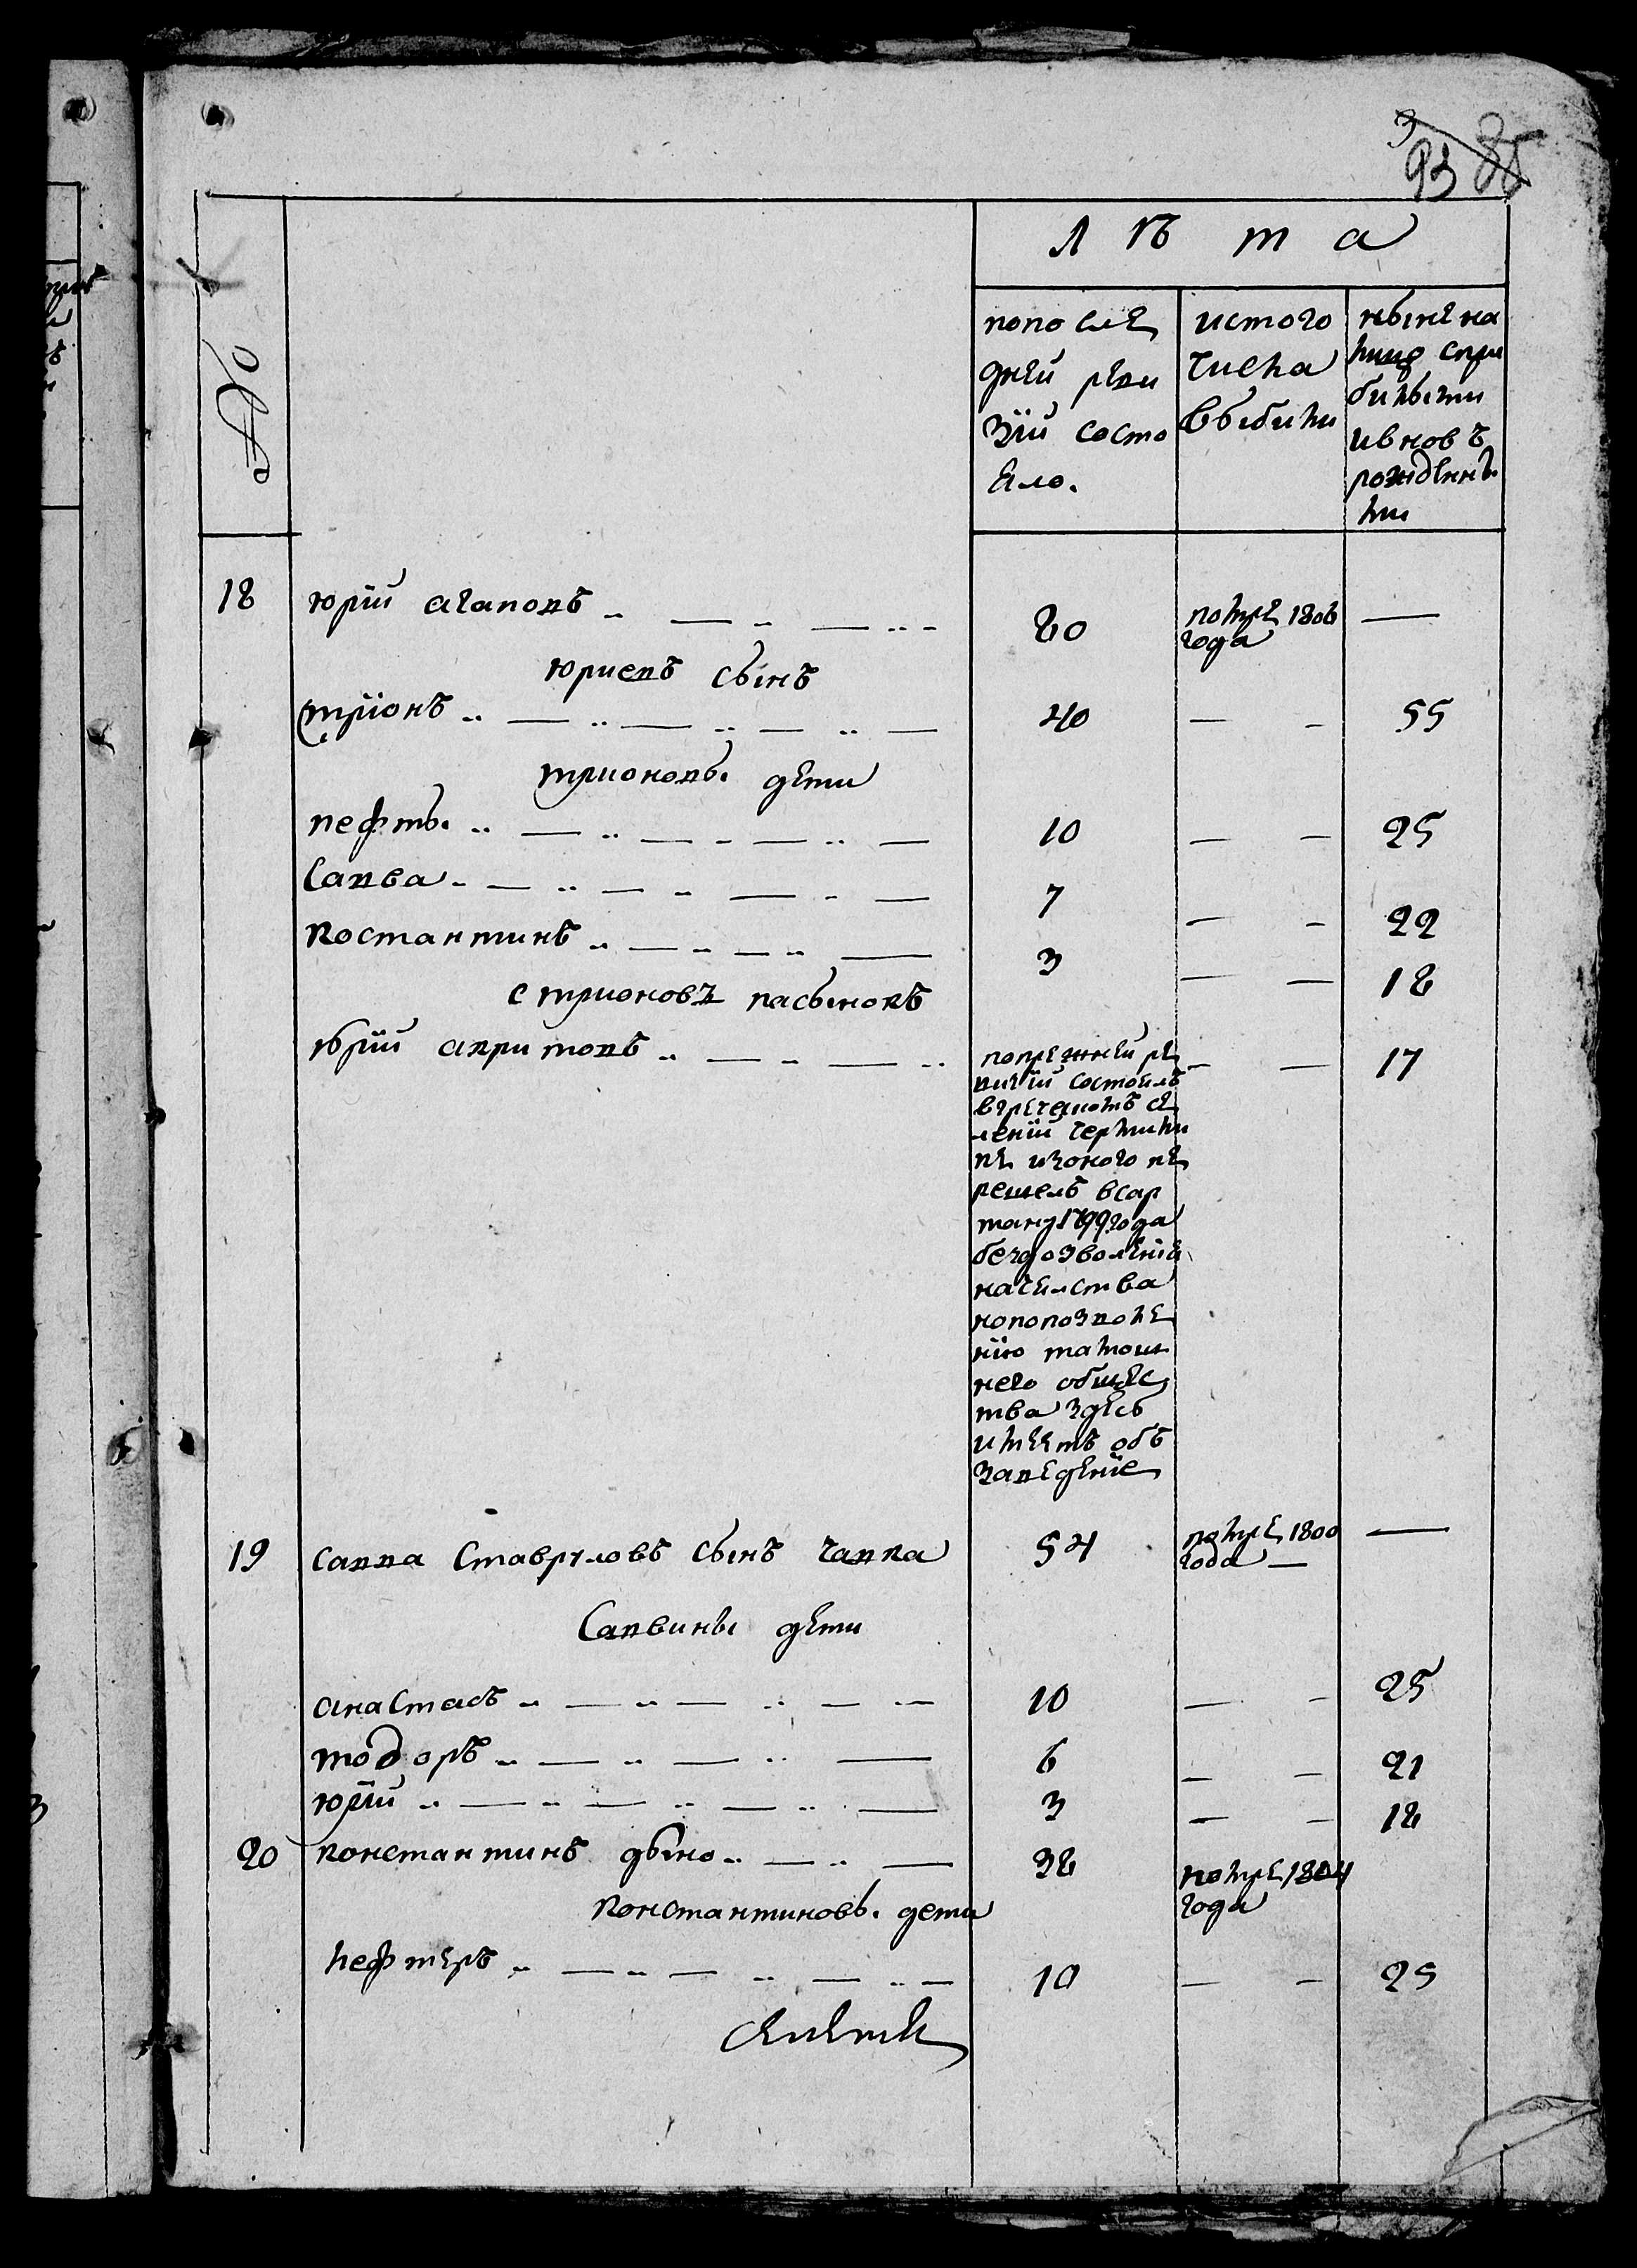 93
№
лѣта
попосле
дней реви
зїи состо
яло.
истого
числа
выбыли
нынѣ на
лицо спри
былыми
ивновъ
рожденны
ми
18 юрїи агаповъ 80 помре 1806 года —
юриевъ сынъ
трїонъ 40 — 55
трионовы дети
лефтъ 10 — 25
савва 7 — 22
костантинъ 3 — 18
стрионовъ пасынокъ
юрїи акритовъ — 17
попрежней ре
визїи состоялъ
вгреческомъ се
ленїи чермалы
ке изоного пе
решелъ всар
тану 1799 года
бездозволенїя
начелства
нопопозволе
нїю тамош
него общес
тва здесь
имеетъ об
заведенїе
19 савва ставруловъ сынъ чапка 54 помре 1800 года —
саввины дети
анастасъ 10 — 25
тодоръ 6 — 21
юрїи 3 — 18
20 константинъ дыно 38 помре 1804 года
константиновы дети
лефтеръ 10 — 25